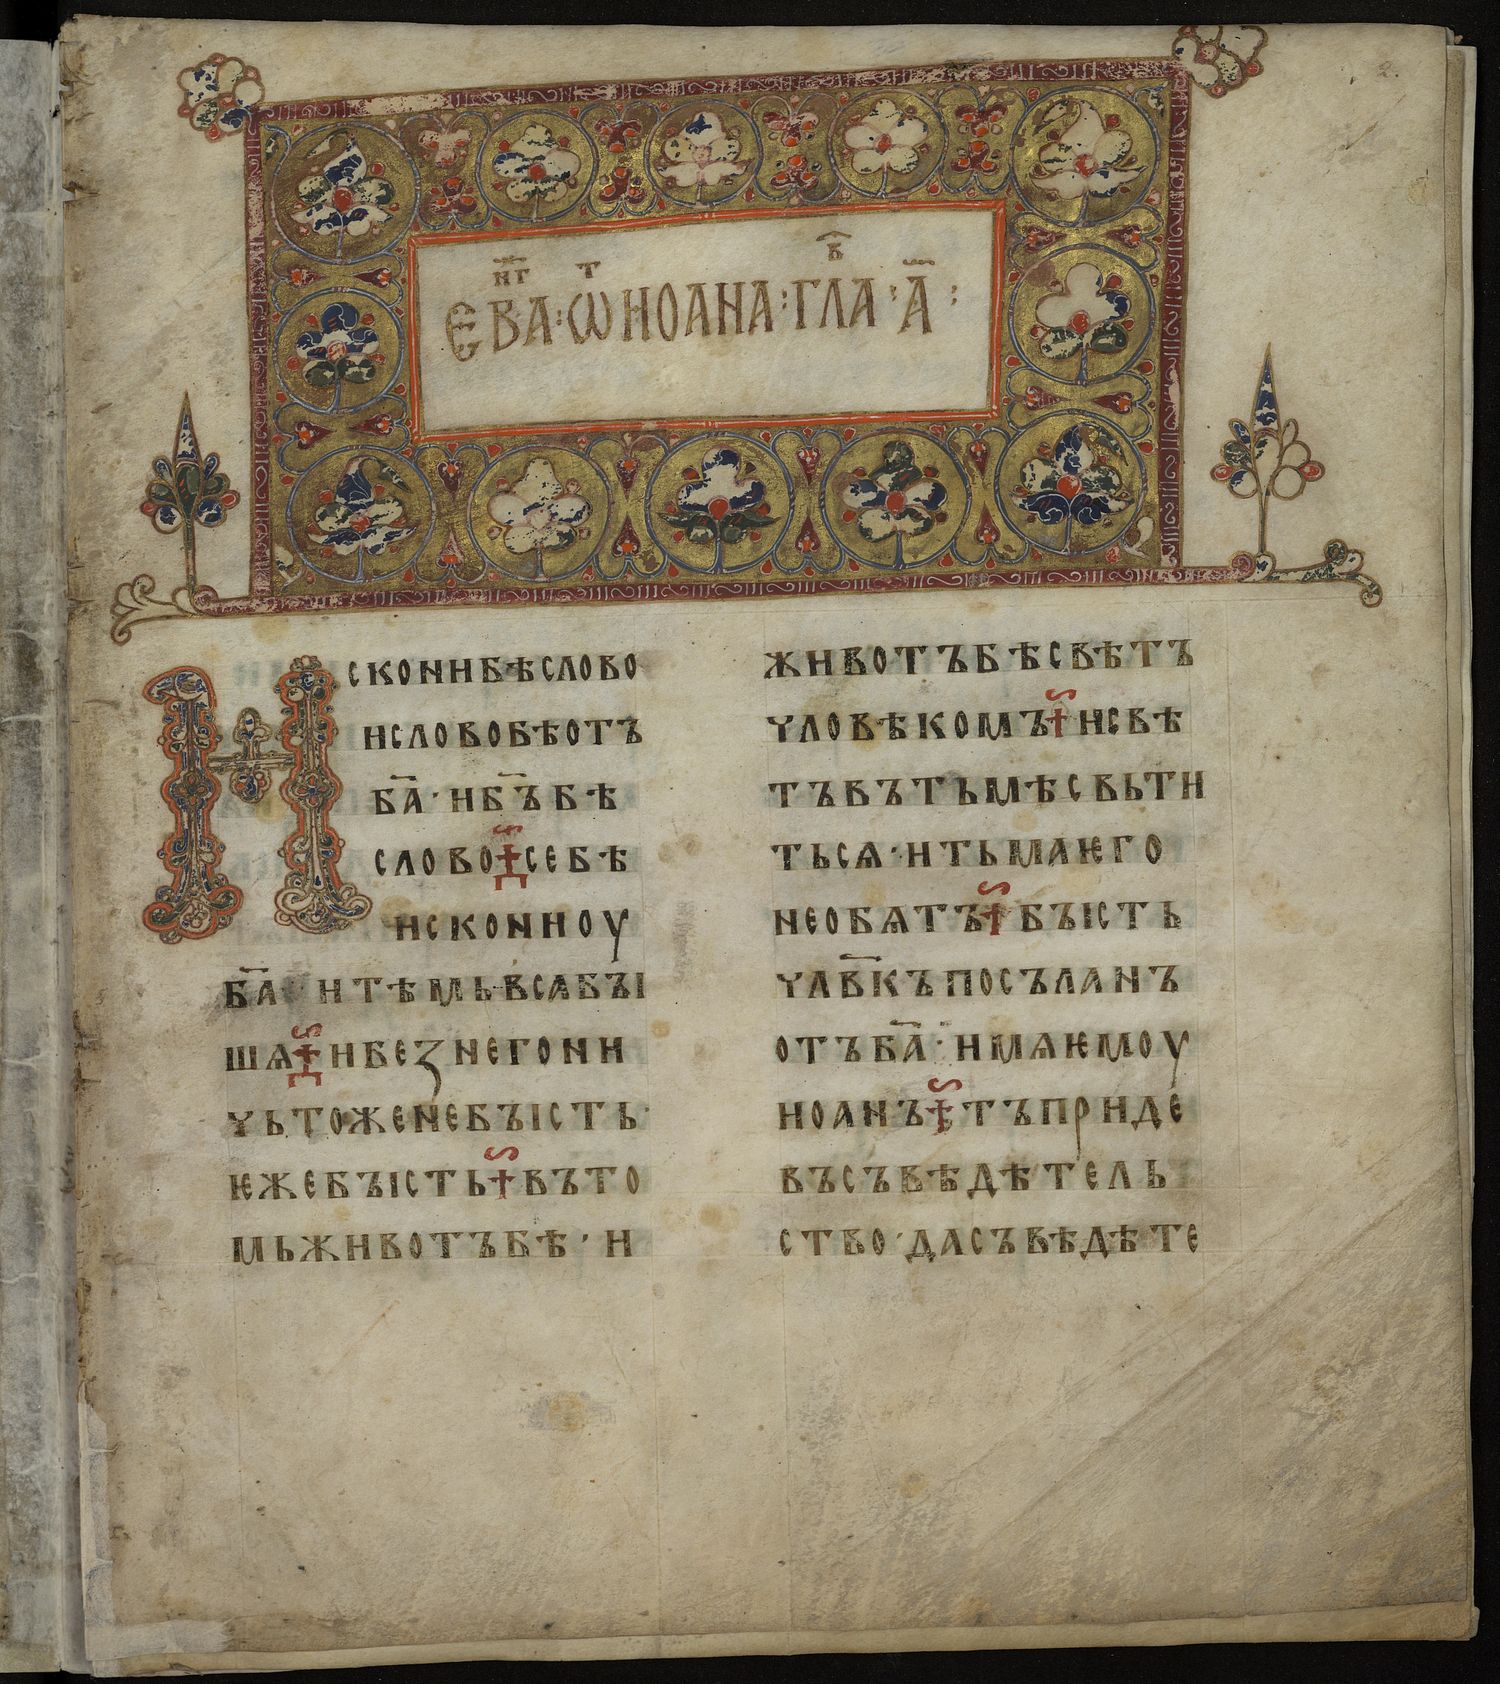 2.
ЕВАНГ҃: ѾИОАНА: ГЛА҃В· А҃:
ИСКОНИБѢСЛОВО
ИСЛОВОБѢОТЪ
Б҃А· ИБ҃ЪБѢ
СЛОВО СЕБѢ
ИСКОНИОУ
Б҃А ИТѢМЬВСѦБЪІ
ШѦ ИБЕЗНЕГОНИ
ЧЬТОЖЕНЕБЪІСТЬ·
ѤЖЕБЪІСТЬ ВЪТО
МЬЖИВОТЪБѢ· И
ЖИВОТЪБѢСВѢТЪ
ЧЛОВѢКОМЪ ИСВѢ
ТЪВЪТЬМѢСВЬТИ
ТЬСѦ· ИТЬМАѤГО
НЕОБѦТЪ БЪІСТЬ
ЧЛВ҃КЪПОСЪЛАНЪ
ОТЪБ҃А· ИМѦѤМОУ
ИОАНЪ ТЪПРИДЕ
ВЪСЪВѢДѢТЕЛЬ
СТВО· ДАСЪВѢДѢТЕ